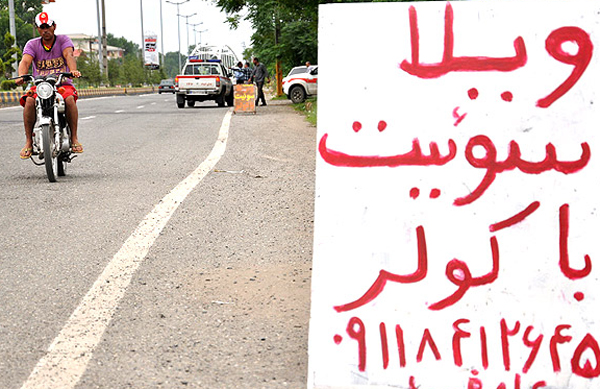 ویلا
سوئیت
با کولر
۰۹۱۱۸۴۱۲۶۴۵